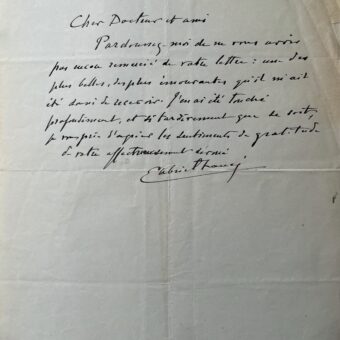 Cher Docteur et ami
Pardonnez-moi de ne vous avoir
pas encore remercié de votre lettre : une des
plus belles, des plus émouvantes qu'il m'ait
été donné de recevoir. J'en ai été touché
profondément, et si tardivement que ce soit,
je vous prie d'agréer les sentiments de gratitude
de votre affectueusement dévoué
Gabriel Fauré